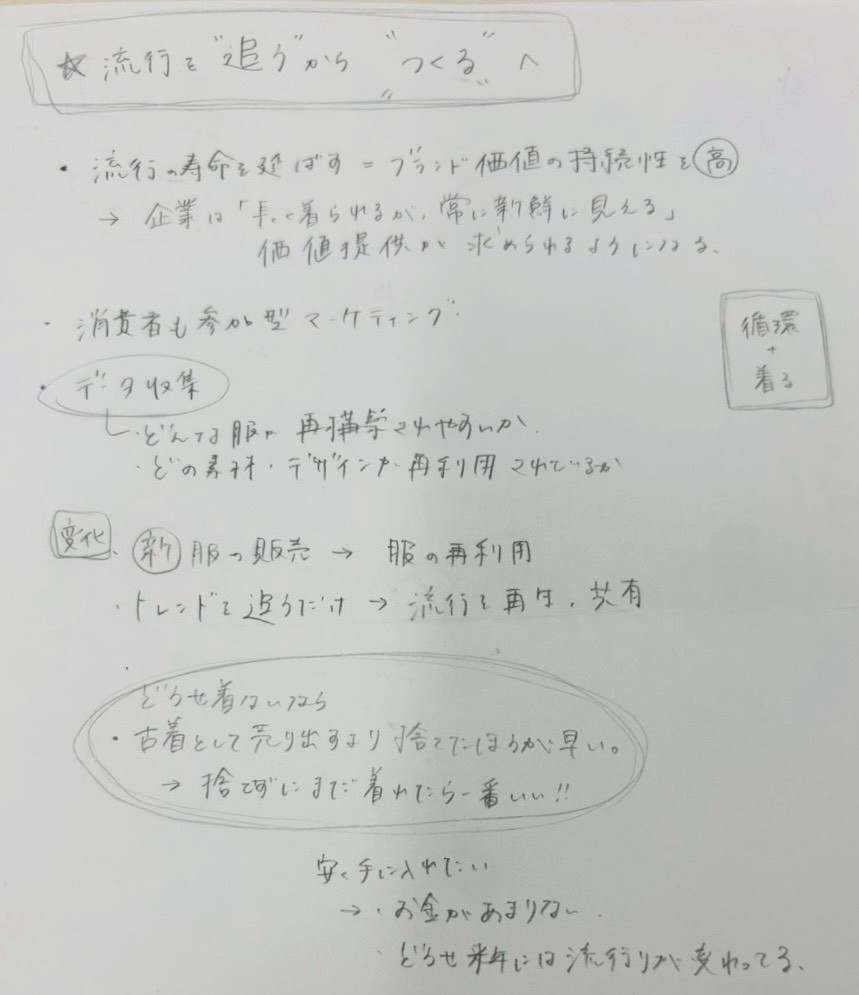 ☆ 流行を"追う"から "つくる"へ
・流行の寿命を延ばす = ブランド価値の持続性を高
→ 企業は「長く着られるが、常に新鮮に見える」
価値提供が求められるようになる。
・消費者も参加型マーケティング
循環
+
着る
・データ収集
・どんな服が再構築されやすいか
・どの素材・デザインが再利用されているか
変化、新服の販売 → 服の再利用
・トレンドを追うだけ → 流行を再生、共有
どうせ着ないなら
・古着として売り出すより捨てたほうが早い。
→ 捨てずにまだ着れたら一番いい!!
安く手に入れたい
→ ・お金があまりない。
・どうせ来年には流行りが変わってる、